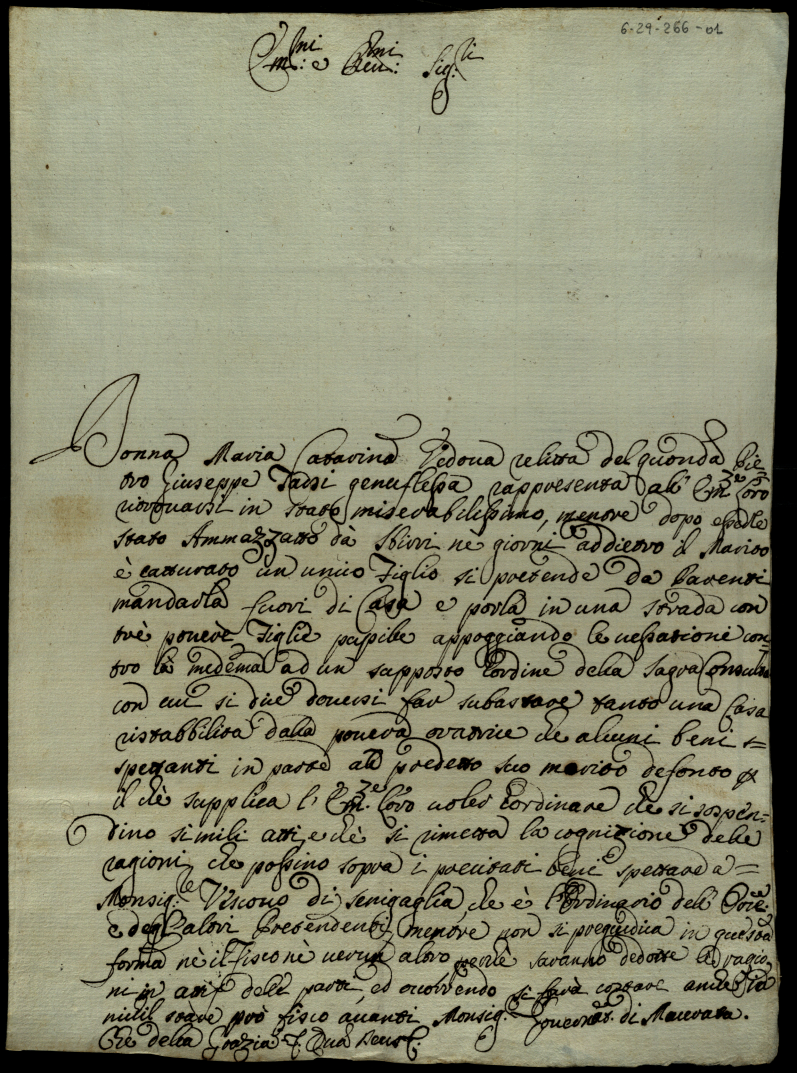 6-29-266-01
Em:mi e Rev:mi Sig:ri
Donna Maria Catarina Vedova relitta del quonda Pie-
tro Giuseppe Tassi genuflessa rappresenta all' Em.ze Loro
ritrovarsi in stato miserabilissimo, mentre dopo esserle
stato Ammazzatto dà Sbirri nè giorni addietro il Marito
è catturato un unico Figlio si pretende da Parenti
mandarla fuori di Casa e porla in una strada con
trè povere Figlie pupille appoggiando le vessatione con
tro la medema ad un supposto Ordine della Sagra Consulta
con cui si dice doversi far subastare tanto una Casa
ristabbilita dalla povera oratrice che alcuni beni =
spettanti in parte al predetto suo marito defonto
il chè supplica l' Em.ze Loro voler Ordinare che si sospen-
dino simili atti, e chè si rimetta la cognizione delle
ragioni, che possino sopra i precitati beni spettare a =
Monsig.re Vescovo di Senigaglia, che è l'Ordinario dell'
e degl'altri Pretendenti, mentre non si pregiudica in questa
forma nè il Fisco nè verun altro perchè saranno dedotte le ragio
ni in atti delle parti, ed occorrendo si farà costare anche
nihil stare prò fisco avanti Monsig. Governat. di Macerata.
Che della Grazia &. Qua Deus &.